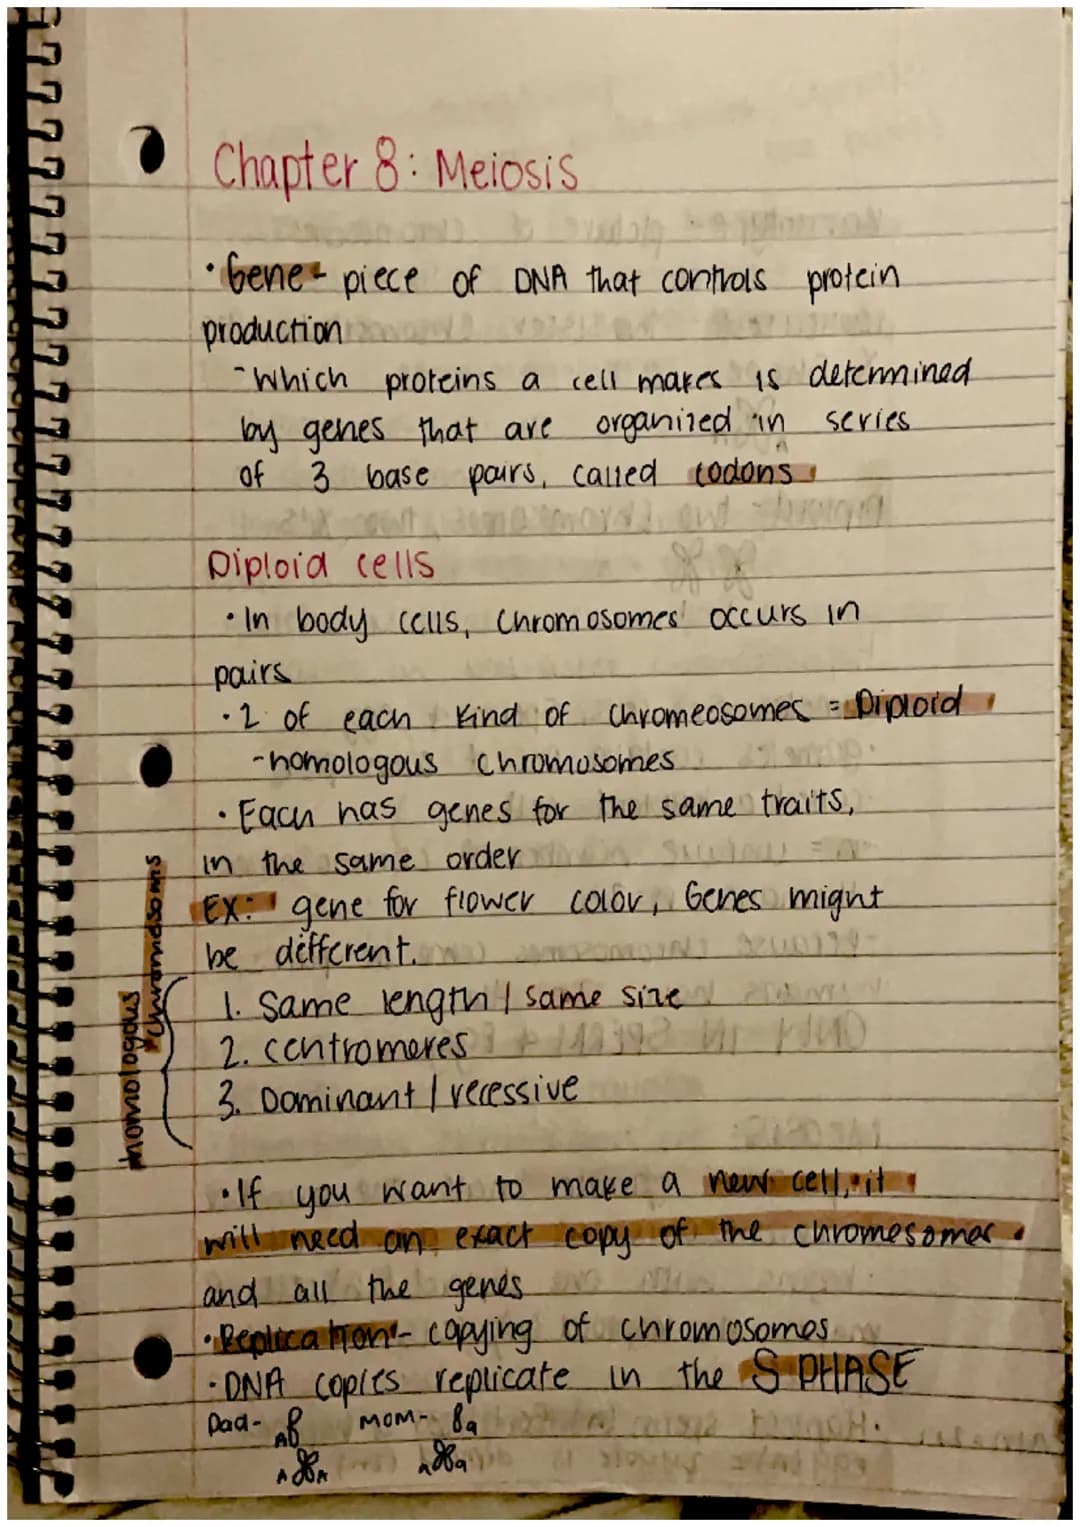 Chapter 8: Meiosis
• Gene - piece of DNA that controls protein
production
- Which proteins a cell makes is determined
by genes that are organized in series
of 3 base pairs, called codons
Diploid cells
• In body cells, Chromosomes occurs in
pairs
• 2 of each kind of Chromeosomes = Diploid
- homologous Chromosomes
• Each has genes for the same traits,
in the same order
EX: gene for flower color, Genes might
be different.
homologous
chromesomes
1. Same length / same size
2. centromeres
3. Dominant / recessive
• If you want to make a new cell, it
will need an exact copy of the chromesomes
and all the genes
• Replication - copying of chromosomes
• DNA copies replicate in the S PHASE
Dad- A Mom- a
A A a a